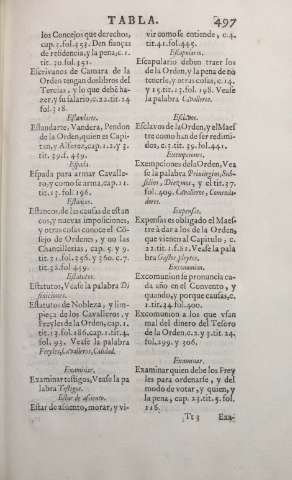 TABLA. 497
los Consejos que derechos,
cap. 5. fol. 453. Den fianças
de residencia, y la pena, c. 1.
tit. 20. fol. 351.
Escrivanos de Camara de la
Orden tengan dos libros del
Tercias, y lo que debẽ ha-
zer, y su salario, c. 22. tit. 24
fol. 318.
Estandarte.
Estandarte, Vandera, Pendon
de la Orden, quien es Capi-
tan, y Alferez, cap. 1. 2. y 3.
tit. 39. f. 459.
Espada.
Espada para armar Cavalle-
ro, y como se arma, cap. 11.
tit. 13. fol. 196.
Estancos.
Estancos, de las causas de estan
cos, y nuevas imposiciones,
y otras cosas conoce el Cõ-
sejo de Ordenes, y no las
Chancillerias, cap. 5. y 9.
tit. 31. fol. 256. y 360. c. 7.
tit. 38. fol. 459.
Estatutos.
Estatutos, Vease la palabra Di
finiciones.
Estatutos de Nobleza, y lim-
pieça de los Cavalleros, y
Freyles de la Orden, cap. 1.
tit. 13. fol. 186. cap. 1. tit. 4.
fol. 93. Vease la palabra
Freyles, Cavalleros, Calidad.
Examinar.
Examinar testigos, Vease la pa
labra Testigos.
Estar de asiento.
Estar de asiento, morar, y vi-
vir como se entiende, c. 4.
tit. 41. fol. 445.
Escapulario.
Escapulario deben traer los
de la Orden, y la pena de no
tenerle, y otras cosas, c. 14.
y 15. tit. 13. fol. 198. Vease
la palabra Cavalleros.
Esclavos.
Esclavos de la Orden, y el Maes
tre como han de ser redimi-
dos, c. 3. tit. 39. fol. 441.
Exempciones.
Exempciones de la Orden, Vea
se la palabra Privilegios, Sub-
sidios, Diezmos, y el tit. 37.
fol. 409. Cavalleros, Comenda-
dores.
Expensas.
Expensas es obligado el Maes-
tre à dar a los de la Orden,
que vienen al Capitulo, c.
22. tit. 1. f. 81. Vease la pala
bra Gastos, pleytos.
Excomunion.
Excomunion se pronuncia ca-
da año en el Convento, y
quando, y porque causas, c.
1. tit. 24. fol. 400.
Excomunion a los que vsan
mal del dinero del Tesoro
de la Orden. c. 2. y 3. tit. 24.
fol. 299. y 306.
Examinar.
Examinar quien debe los Frey
les para ordenarse, y del
modo de votar, y quien, y
la pena, cap. 23. tit. 5. fol.
116.
Tt 3 Exa-